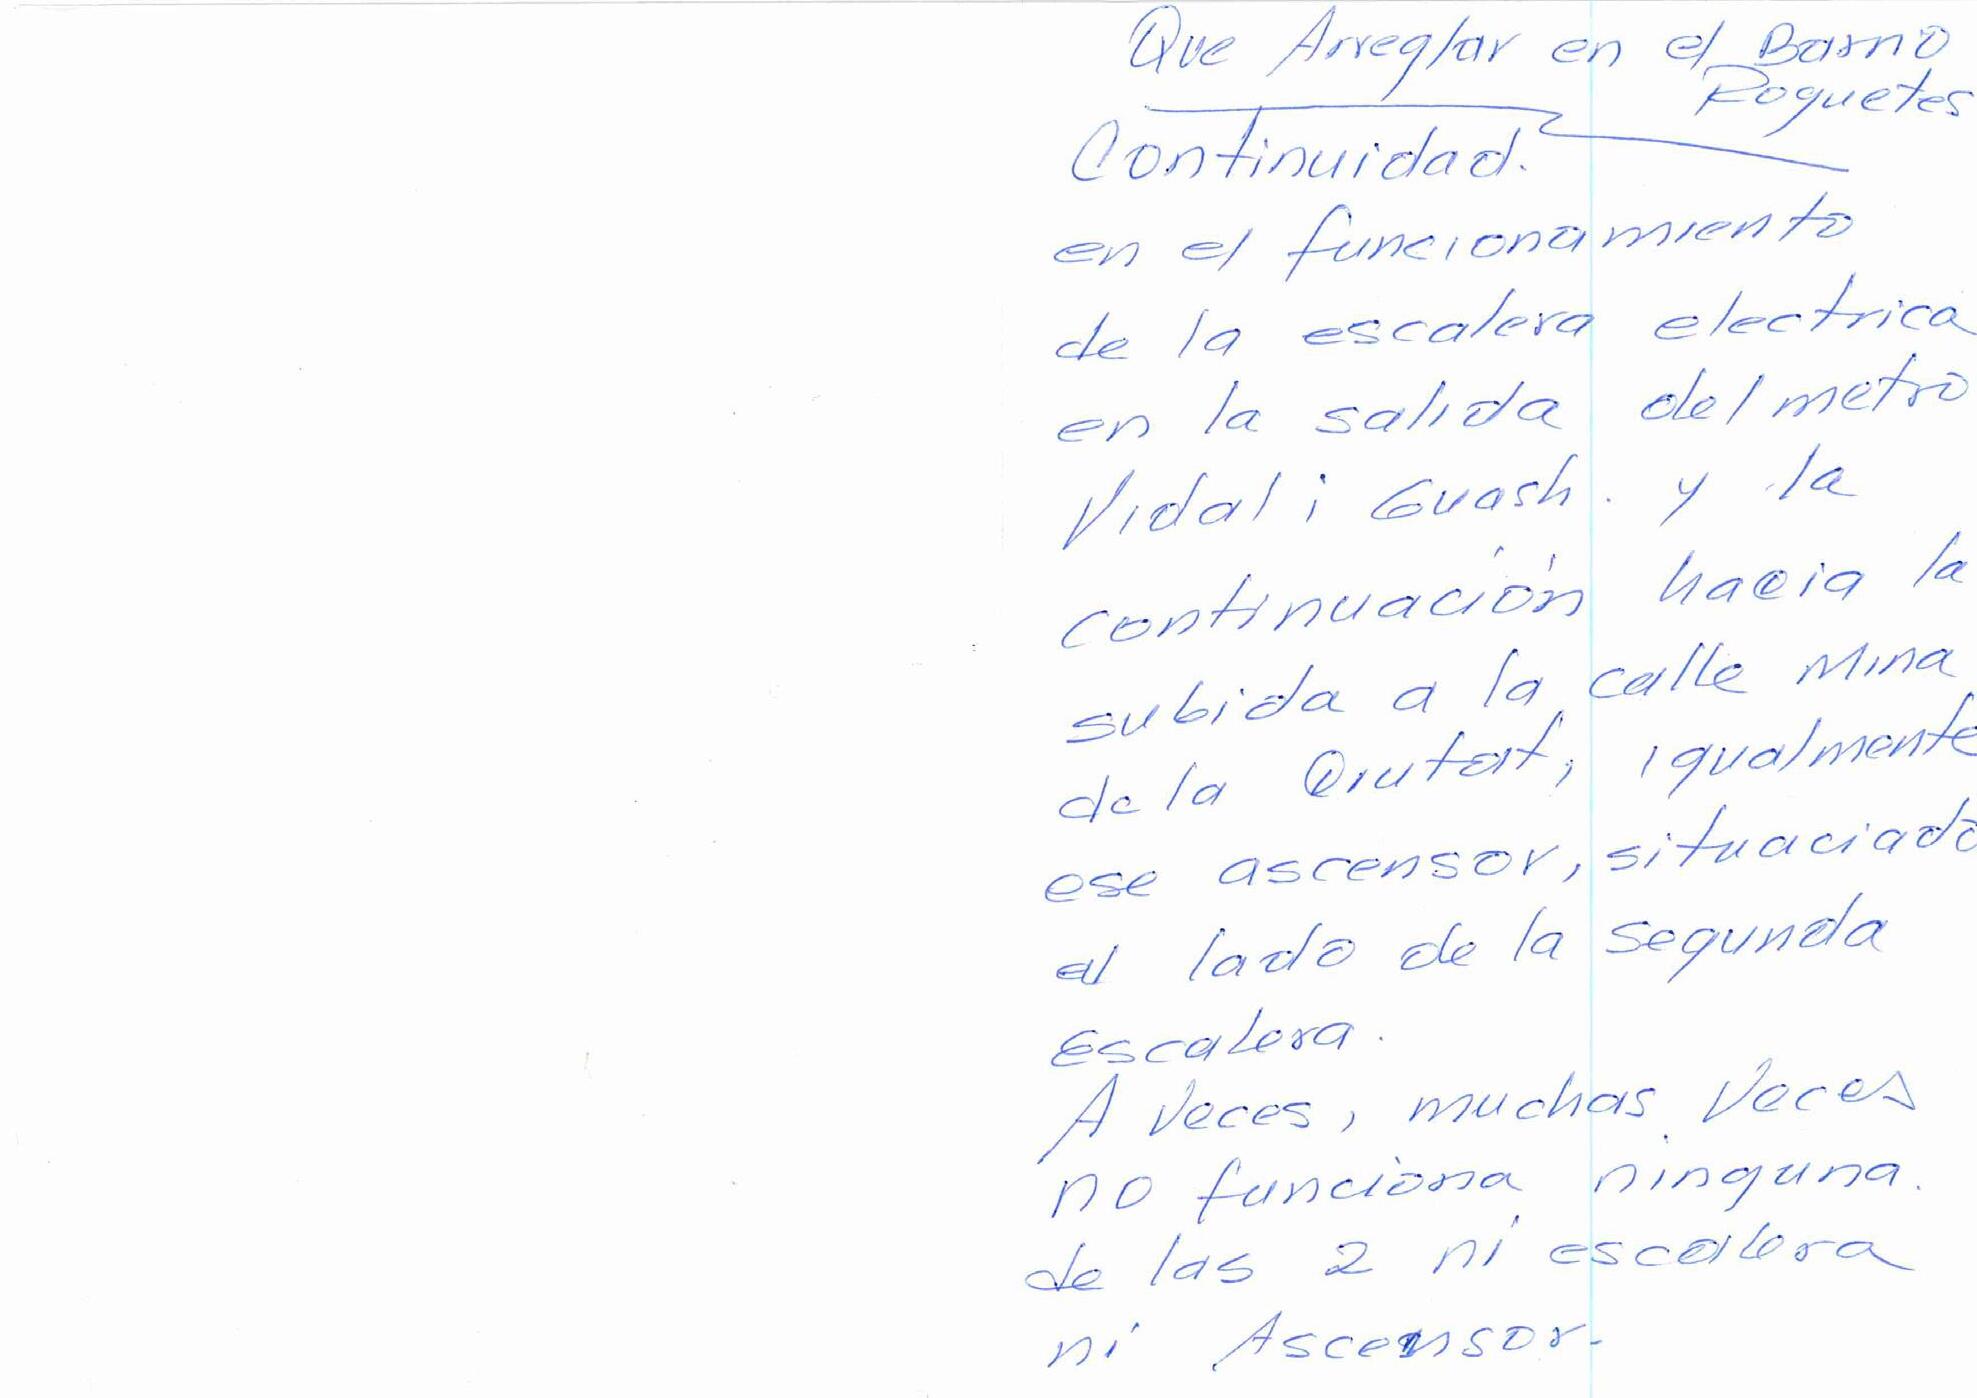 Que Arreglar en el Barrio
Roquetes
Continuidad.
en el funcionamiento
de la escalera electrica
en la salida del metro
Vidal i Guash. y la
continuación hacia la
subida a la calle Mina
de la Ciutat, igualmente
ese ascensor, situaciado
al lado de la segunda
Escalera.
A Veces, muchas Veces
no funciona ninguna.
de las 2 ni escalera
ni Ascensor.